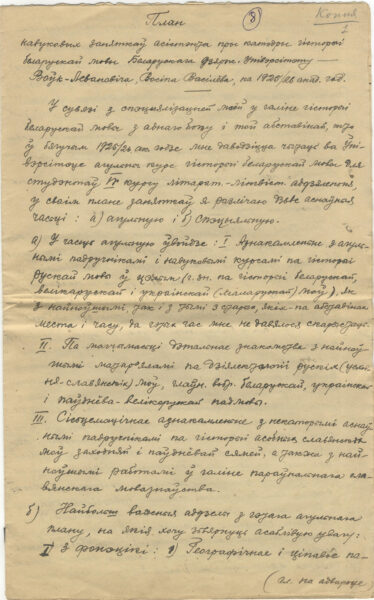 Копія
I
План
(8)
навуковых заняткаў асістэнта пры катэдры гісторыі
беларускай мовы Беларускага Дзярж. Універсітэту —
Воўк-Левановіча, Восіпа Васілёва, на 1925/26 акад. год.
У сувязі з спэцыялізацыяй маёй у галіне гісторыі
беларускай мовы з аднаго боку і той абставінай, што
ў бягучым 1925/26 ак. годзе мне давядзецца чытаць ва Уні-
вэрсітэце агульны курс гісторыі беларускай мовы для
студэнтаў курсу літэрат.-лінгвіст. аддзялення,
у сваім пляне заняткаў я разлічаю дзьве асноўныя
часьці: а) агульную і б) спэцыяльную.
а) У часьць агульную ўвойдзе: I. Азнакамленьне з агуль-
нымі падручнікамі і навуковымі курсамі па гісторыі
рускай мовы ў цэлым (г.зн. па гісторыі беларускай,
велікарускай і украінскай (маларускай) моў), як
з найноўшымі, так і з тымі з старых, якія па абставінах
места і часу, да гэтых час мне не давялося
II. Па магчымасьці дэталёвае знаёмства з найноў-
шымі матар'яламі па дыялектолёгіі рускіх
ня-славянскіх) моў, галоўн. беларускай, украінскай
і паўднёва-велікарускай
III. Сыстэматычнае азнакамленьне з некаторымі асноў-
нымі падручнікамі па гісторыі асобных славянскіх
моў заходняй і паўднёвай сямей, а такжа з най-
ноўшымі работамі ў галіне параўнальнага сла-
вянскага мовазнаўства.
б) Найболш важныя аддзелы з гэтага агульнага
пляну, на якія хачу зьвярнуць асаблівую увагу:
I З фонэтыкі: 1) Геаграфічнае і
(гл. на адвароце